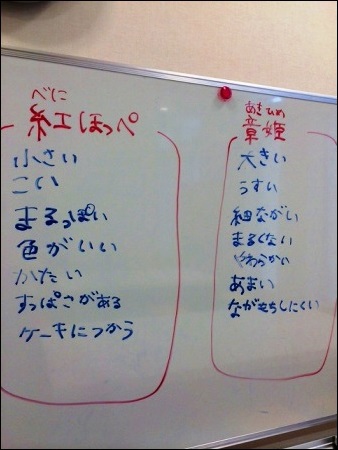 べに
紅ほっぺ
小さい
こい
まるっぽい
色がいい
かたい
すっぱさがある
ケーキにつかう
あきひめ
章姫
大きい
うすい
細ながい
まるくない
やわらかい
あまい
ながもちしにくい